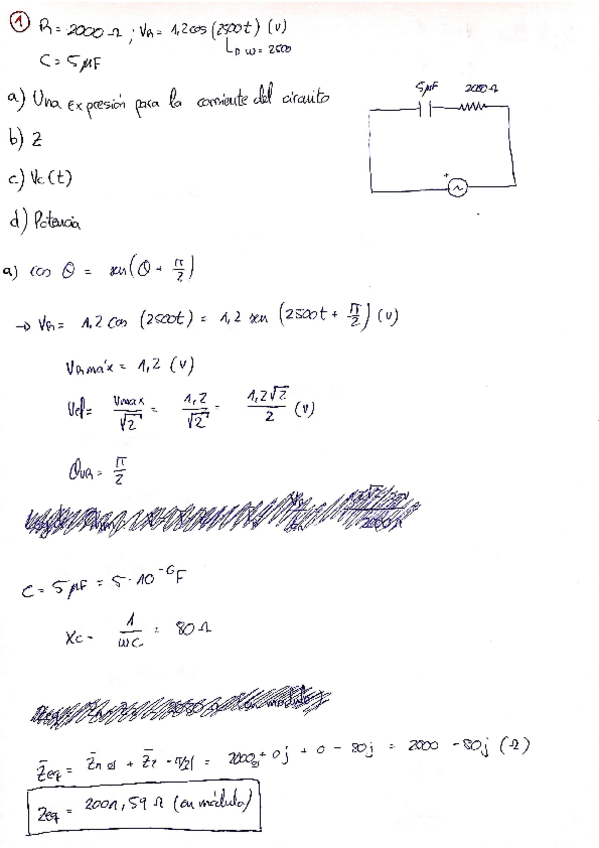 ① R = 2000 Ω ; VR = 1,2 cos (2500t) (V)
↳ ω = 2500
C = 5 μF
a) Una expresión para la corriente del circuito
b) Z
c) Vc (t)
d) Potencia
5μF 2000Ω
+
a) cos θ = sen(θ + π/2)
→ VR = 1,2 cos (2500t) = 1,2 sen (2500t + π/2) (V)
VR máx = 1,2 (V)
Vef = Vmax/√2 = 1,2/√2 = 1,2√2/2 (V)
θVR = π/2
C = 5 μF = 5 · 10⁻⁶ F
Xc = 1/ωC = 80 Ω
Zeq = + = 2000 + 0j + 0 - 80j = 2000 - 80j (Ω)
Zeq = 2001,59 Ω (en módulo)